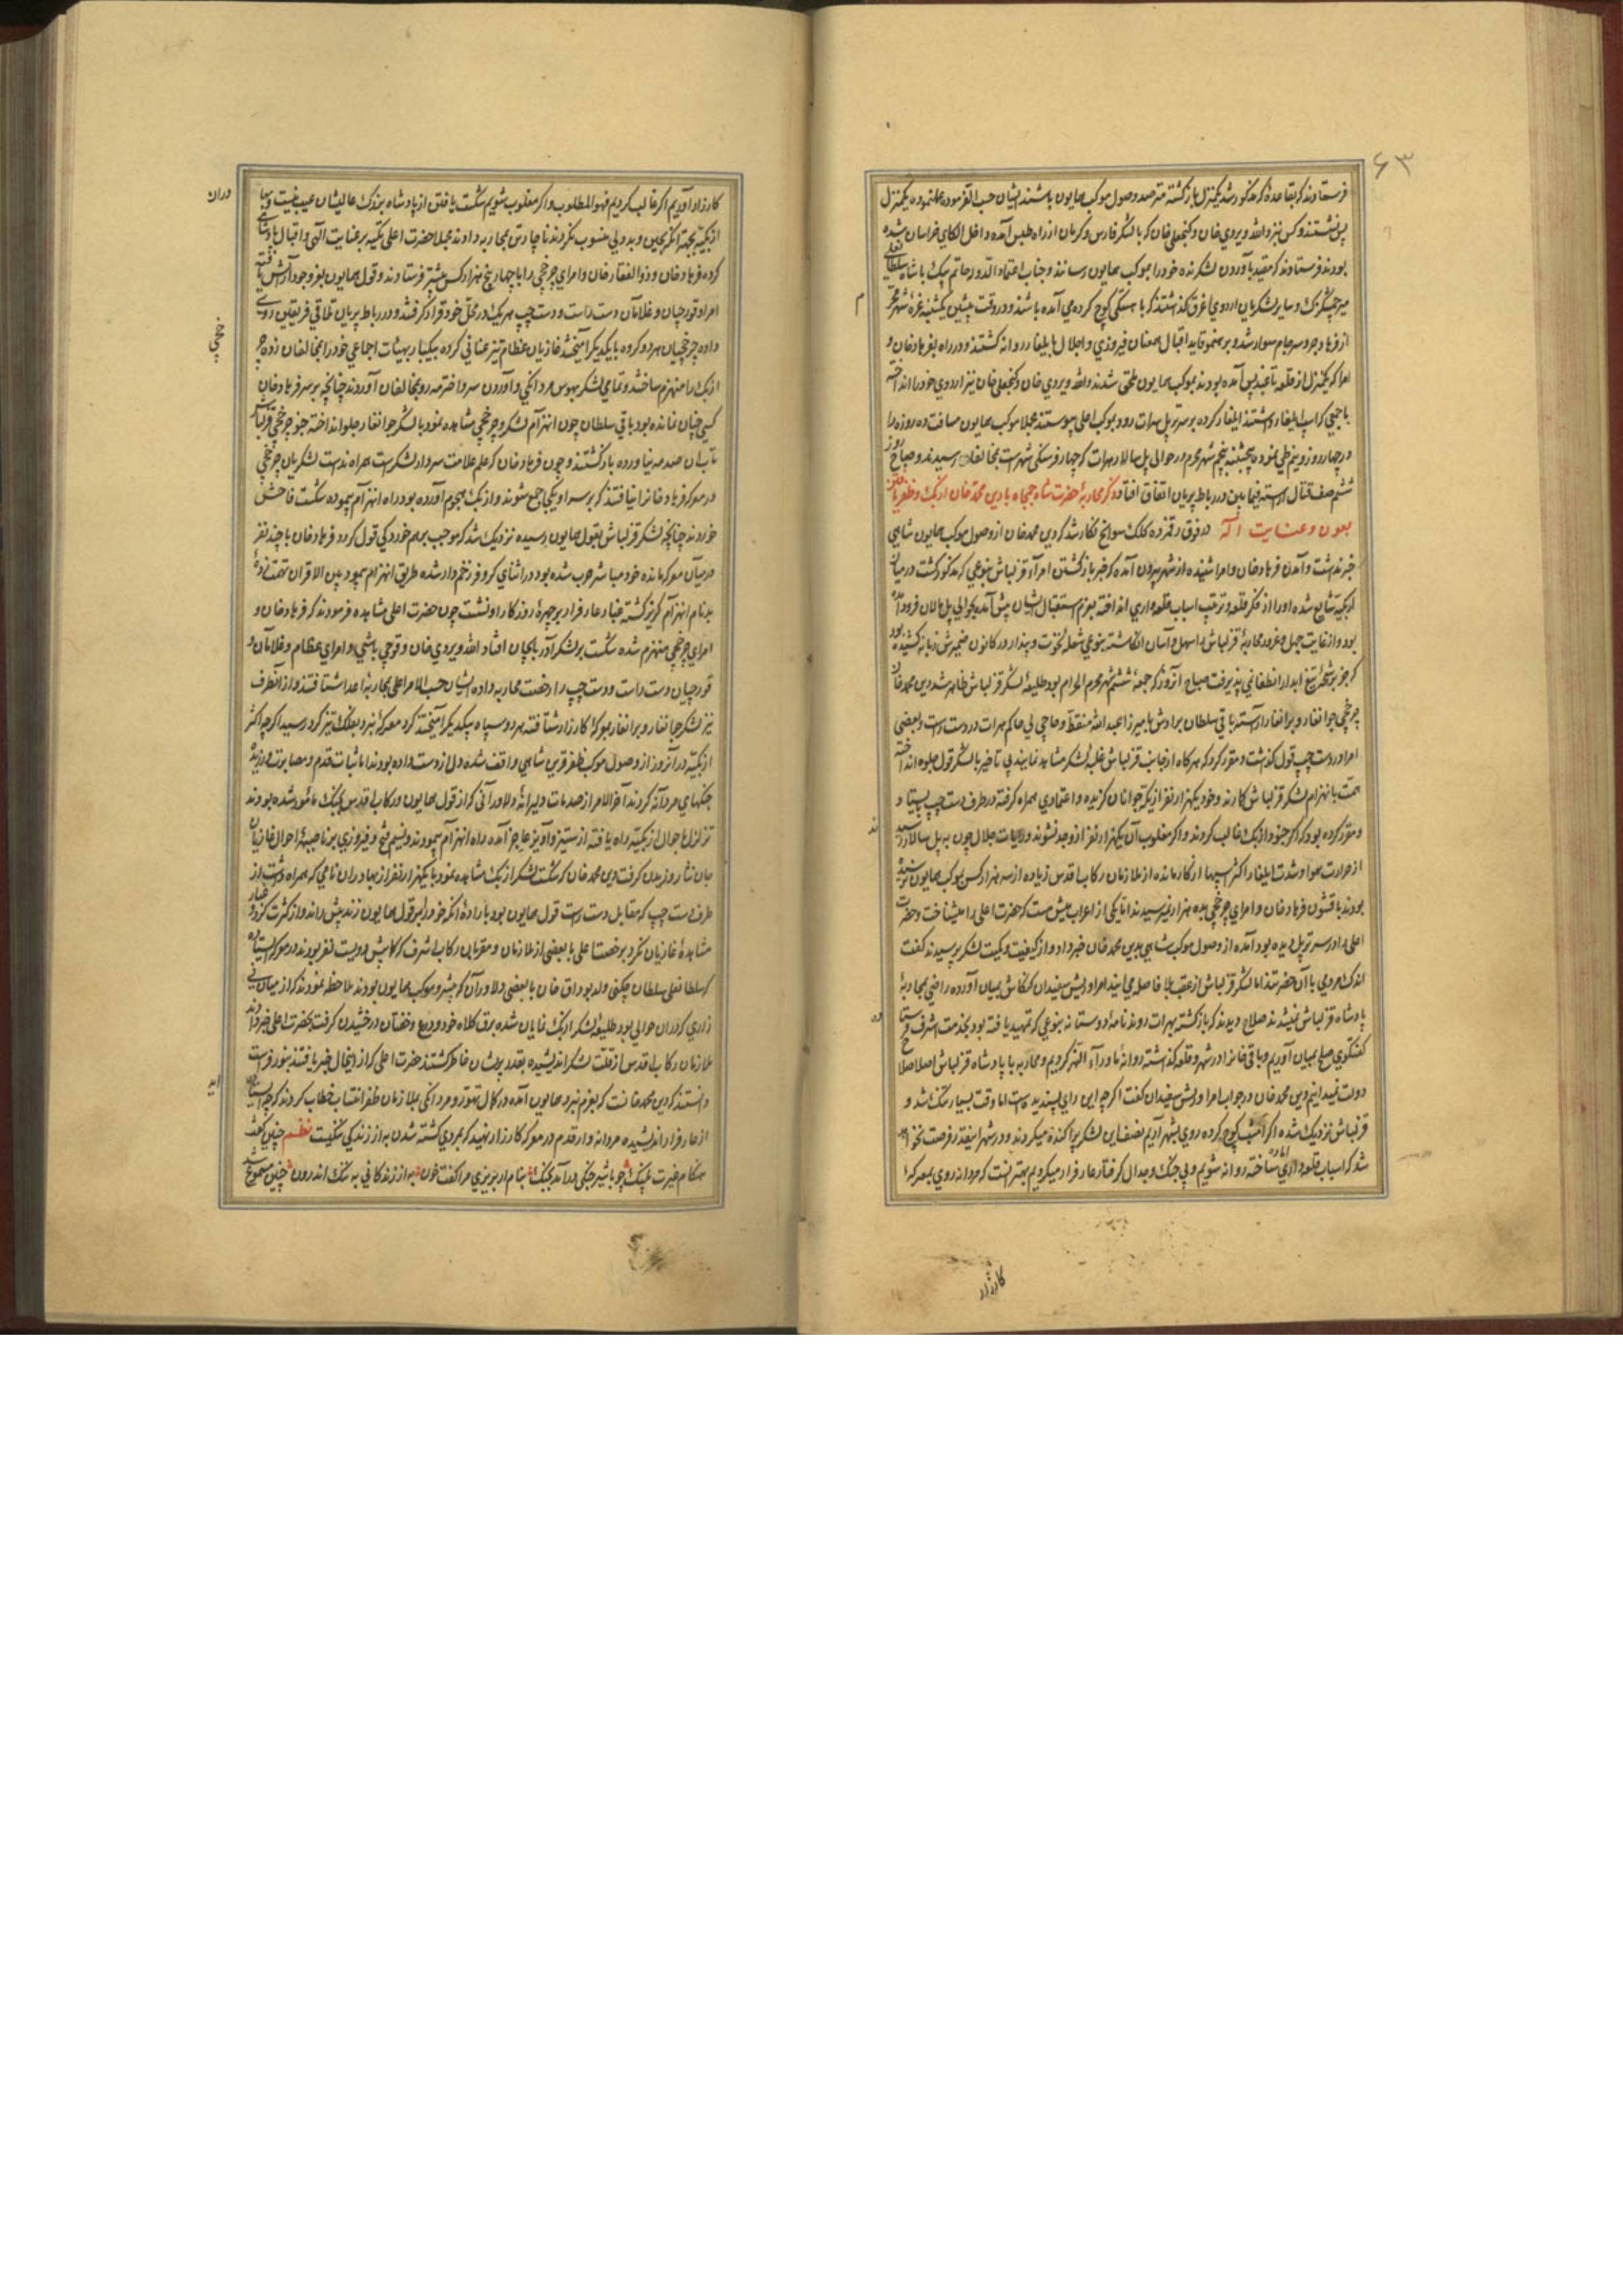 ۶۳
فرستادند که بقاعدهٔ که مذکور شد یکمنزل بازگشته مترصد وصول موکب همایون باشند ایشان حسب الفرموده عمل نموده یکمنزل
پس نشستند و کس نزد الله ویردی خان و گنجعلی خان که با لشکر فارس و کرمان از راه طبس آمده داخل الکای خراسان شده
بودند فرستادند که مقید بآوردن لشکر نشده خود را بموکب همایون رسانند و جناب اعتماد الدوله حاتم بیک با شاه
میر چمشکزک و سایر لشکریان اردوی اغرق گذاشتند که باهستگی کوچ کرده می آمده باشند و در وقت پیشین یکشنبه غره شهر محرم
از فرهاد جرد سرجام سوار شده و بر هنمونی قاید اقبال همعنان فیروزی و اجلال بایلغار روانه گشتند و در راه بفرهاد خان و
امرا که یکمنزل از قلعه تا عقب پس آمده بودند بموکب همایون ملحق شدند و الله ویردی خان و گنجعلی خان نیز اردوی خود را انداخته
با جمعی که اسب ایلغار داشتند ایلغار کرده بر سر تربل هرات رود بموکب اعلی پیوستند مجملا موکب همایون مسافت ده روزه را
در چهار روز و نیم طی نموده پنجشنبه پنجم شهر محرم در حوالی پل سالار هرات که چهار فرسنگی شهر است بمخالفان رسیدند و صباح روز
ششم صف قتال آراسته فیمابین در رباط پریان اتفاق افتاد ذکر محاربهٔ حضرت شاه جمجاه با دین محمد خان ازبک و ظفر یافتن
بعون و عنایت اله در فوق رقمزده کلک سوانح نگار شد که دین محمد خان از وصول موکب همایون شاهی
خبر نداشت و آمدن فرهاد خان و امرا شنیده از شهر بیرون آمده که خبر بازگشتن امرآء قزلباش بنوعی که مذکور گشت در میان
ازبکیه شایع شده او را از فکر قلعه و ترتیب اسباب قلعه داری انداخته بعزم استقبال ایشان پیش آمده بحوالی پل مالان فرود آمده
بود و از غایت جهل و غرور محاربهٔ قزلباش را سهل و آسان انگاشته بنوعی شعلهٔ نخوت و پندار در کانون ضمیرش زبانه کشیده بود
که جز برشحهٔ تیغ آبدار انطفا نمی پذیرفت صباح آنروز که جمعهٔ ششم شهر محرم الحرام بود طلیعهٔ لشکر قزلباش ظاهر شد دین محمد خان
چرخچی و جرانغار و برانغار آراسته باقی سلطان برادرش با میرزا عبدالله منقط و حاجی بی حاکم هرات در دست راست و بعضی
امرا در دست چپ قول گذاشت و مقرر کرد که هرگاه از جانب قزلباش غلبهٔ لشکر مشاهد نمایند بی تاخیر با لشکر قول جلو انداخته
همت بانهزام لشکر قزلباش گمارند و خود با یکهزار نفر از یکه جوانان گزیده و اعتمادی همراه گرفته در طرف دست چپ بایستاد و
و مقرر کرده بود که اگر جنود ازبک غالب گردند و اگر مغلوب آن یکهزار نفر از وجدا نشوند و رایات جلال چون به پل سالار رسید
از حرارت هوا و شدت ایلغار اکثر اسپها از کار مانده از ملازمان رکاب اقدس زیاده از سه هزار کس بموکب همایون نرسیده
بودند با قشون فرهاد خان و امرای چرخچی بده هزار نمیرسیدند اتا یکی از اعراب میش مست که حضرت اعلی را میشناخت و حضرت
اعلی را در سر تربل دیده بود آمده از وصول موکب شاهی بدین محمد خان خبر داد و از کیفیت و کمیت لشکر پرسیدند گفت
اندک مردمی با آن حضرتند اما لشکر قزلباش از عقب بلا فاصله می آیند امرا و ریش سفیدان کنکاش بمیان آورده راضی بمحاربهٔ
پادشاه قزلباش نمیشدند صلاح دیدند که بازگشته بهرات روند نامهٔ دوستانه بنوعی که تمهید یافته بود بخدمت اشرف فرستاده
گفتگوی صلح بمیان آوریم و باقی خانرا در شهر و قلعه گذاشته روانهٔ ماورآء النهر گردیم و محاربه با پادشاه قزلباش اصلا صلاح
دولت نمیدانیم دین محمد خان در جواب امرا و ریش سفیدان گفت اگرچه این رای پسندیده است اما وقت بسیار تنگ شد و
قزلباش نزدیک شده اگر امشب کوچ کرده روی بشهر آریم نصف این لشکر پراکنده میگردند و در شهر اینقدر فرصت نخواهد
شد که اسباب قلعه داری آماده ساخته روانه شویم و بی جنگ و جدال گرفتار عار فرار میگردیم بهتر آنست که مردانه روی بمعرکهٔ
کارزار
کارزار آوریم اگر غالب گردیم فهو المطلوب و اگر مغلوب شویم شکست یافتن از پادشاه بزرگ عالیشان عیب نیست و سپاه
ازبکیه بجهة آنکه بجبن و بددلی منسوب نگردند ناچار تن بمحاربه دادند مجملا حضرت اعلی تکیه بر عنایت الهی و اقبال پادشاهی
کرده فرهاد خان و ذوالفقار خان و امرای چرخچی را با چهار پنج هزار کس پیشتر فرستادند و قول همایون بفر وجود آرایش یافته
امرا و قورچیان و غلامان دست راست و دست چپ هر یک در محل خود قرار گرفتند و در رباط پریان تلاقی فریقین روی
داده چرخچیان هر دو گروه با یکدیگر آمیختند غازیان عظام تیز عنانی کرده بیکبار بهیئات اجماعی خود را بمخالفان زده
ازبک را منهزم ساختند و تمامی لشکر بهوس مردانگی و آوردن سر و اخترمه رو بمخالفان آوردند چنانچه بر سر فرهاد خان
کسی چنان نمانده بود باقی سلطان چون انهزام لشکر و چرخچی مشاهده نمود با لشکر جرانغار جلو انداخته چرخچی قزلباش
تاب آن صدمه نیاورده بازگشتند و چون فرهاد خان که علم علامت سردار لشکر است همراه نداشت لشکریان چرخچی
در معرکه فرهاد خان را نیافتند که بر سر او یکجا جمع شوند و ازبک هجوم آورده بود راه انهزام پیموده شکست فاحش
خوردند چنانچه لشکر قزلباش بقول همایون رسیده نزدیک شد که موجب برهم خوردگی قول گردد فرهاد خان با چند نفر
در میان معرکه مانده خود مباشر حرب شده بود در اثنای کر و فر زخم دار شده طریق انهزام پیمود بین الاقران تهمت زدهٔ
بدنام انهزام گریز گشته غبار عار فرار بر چهرهٔ روزگار او نشست چون حضرت اعلی مشاهده فرمودند که فرهاد خان و
امرای چرخچی منهزم شده شکست بر لشکر آذربایجان افتاد الله ویردی خان و قورچی باشی و امرای عظام و غلامان و
قورچیان دست راست و دست چپ را رخصت محاربه داده ایشان حسب الامر اعلی بمحاربهٔ اعدا شتافتند و از آنطرف
نیز لشکر جرانغار و برانغار بمعرکهٔ کارزار شتافته هر دو سپاه بیکدیگر آمیختند گرد معرکهٔ نبرد بفلک تیز گرد رسید اگرچه اکثر
ازبکیه در آنروز از وصول موکب ظفر قرین شاهی واقف شده دل از دست داده بودند اما ثبات قدم و مصابرت ورزیده
جنگهای مردانه کردند آخر الامر از صدمات دلیرانهٔ دلاورانی که از قول همایون و رکاب اقدس بجنگ مأمور شده بودند
تزلزل باحوال ازبکیه راه یافته از ستیز و آویز عاجز آمده راه انهزام پیمودند و نسیم فتح و فیروزی بر ناصیهٔ احوال غازیان
جان نثار وزیدن گرفت دین محمد خان که شکست لشکر ازبک مشاهده نمود با یکهزار نفر از بهادران نامی که همراه داشت از
طرف دست چپ که مقابل دست راست قول همایون بود بارادهٔ آنکه خود را بر قول همایون زند پیش راند و از کثرت گرد و غبار
مشاهدهٔ غازیان نکرد و حضرت اعلی با بعضی از ملازمان و مقربان رکاب اشرف که کمابیش دویست نفر بودند در معرکه ایستاده
که سلطانعلی سلطان چگنی ولد بوداق خان با بعضی دلاوران که پیشرو موکب همایون بودند ملاحظه نمودند که از میان نی
زاری که در آن حوالی بود طلیعهٔ لشکر ازبک نمایان شده برق کلاه خود و درع و خفتان درخشیدن گرفت بحضرت اعلی خبر دادند
ملازمان رکاب اقدس از قلت لشکر اندیشیده بقدر پریشان خاطر گشتند حضرت اعلی که از اینحال خبر یافتند بنور فراست
دانستند که دین محمد خانست که بعزم نبرد همایون آمده در کمال تهور و مردانگی بملازمان ظفر انتساب خطاب کردند که
از عار فرار اندیشیده مردانه وار قدم در معرکهٔ کارزار نهید که بمردی کشته شدن به از زندگی بننگیست نظم چنین گفت
هنگام غیرت پلنگ چو با شیر جنگی درآمد بجنگ بنام ار بریزی مرا گفت خون به از زندگانی به ننگ اندرون چنین مسموع